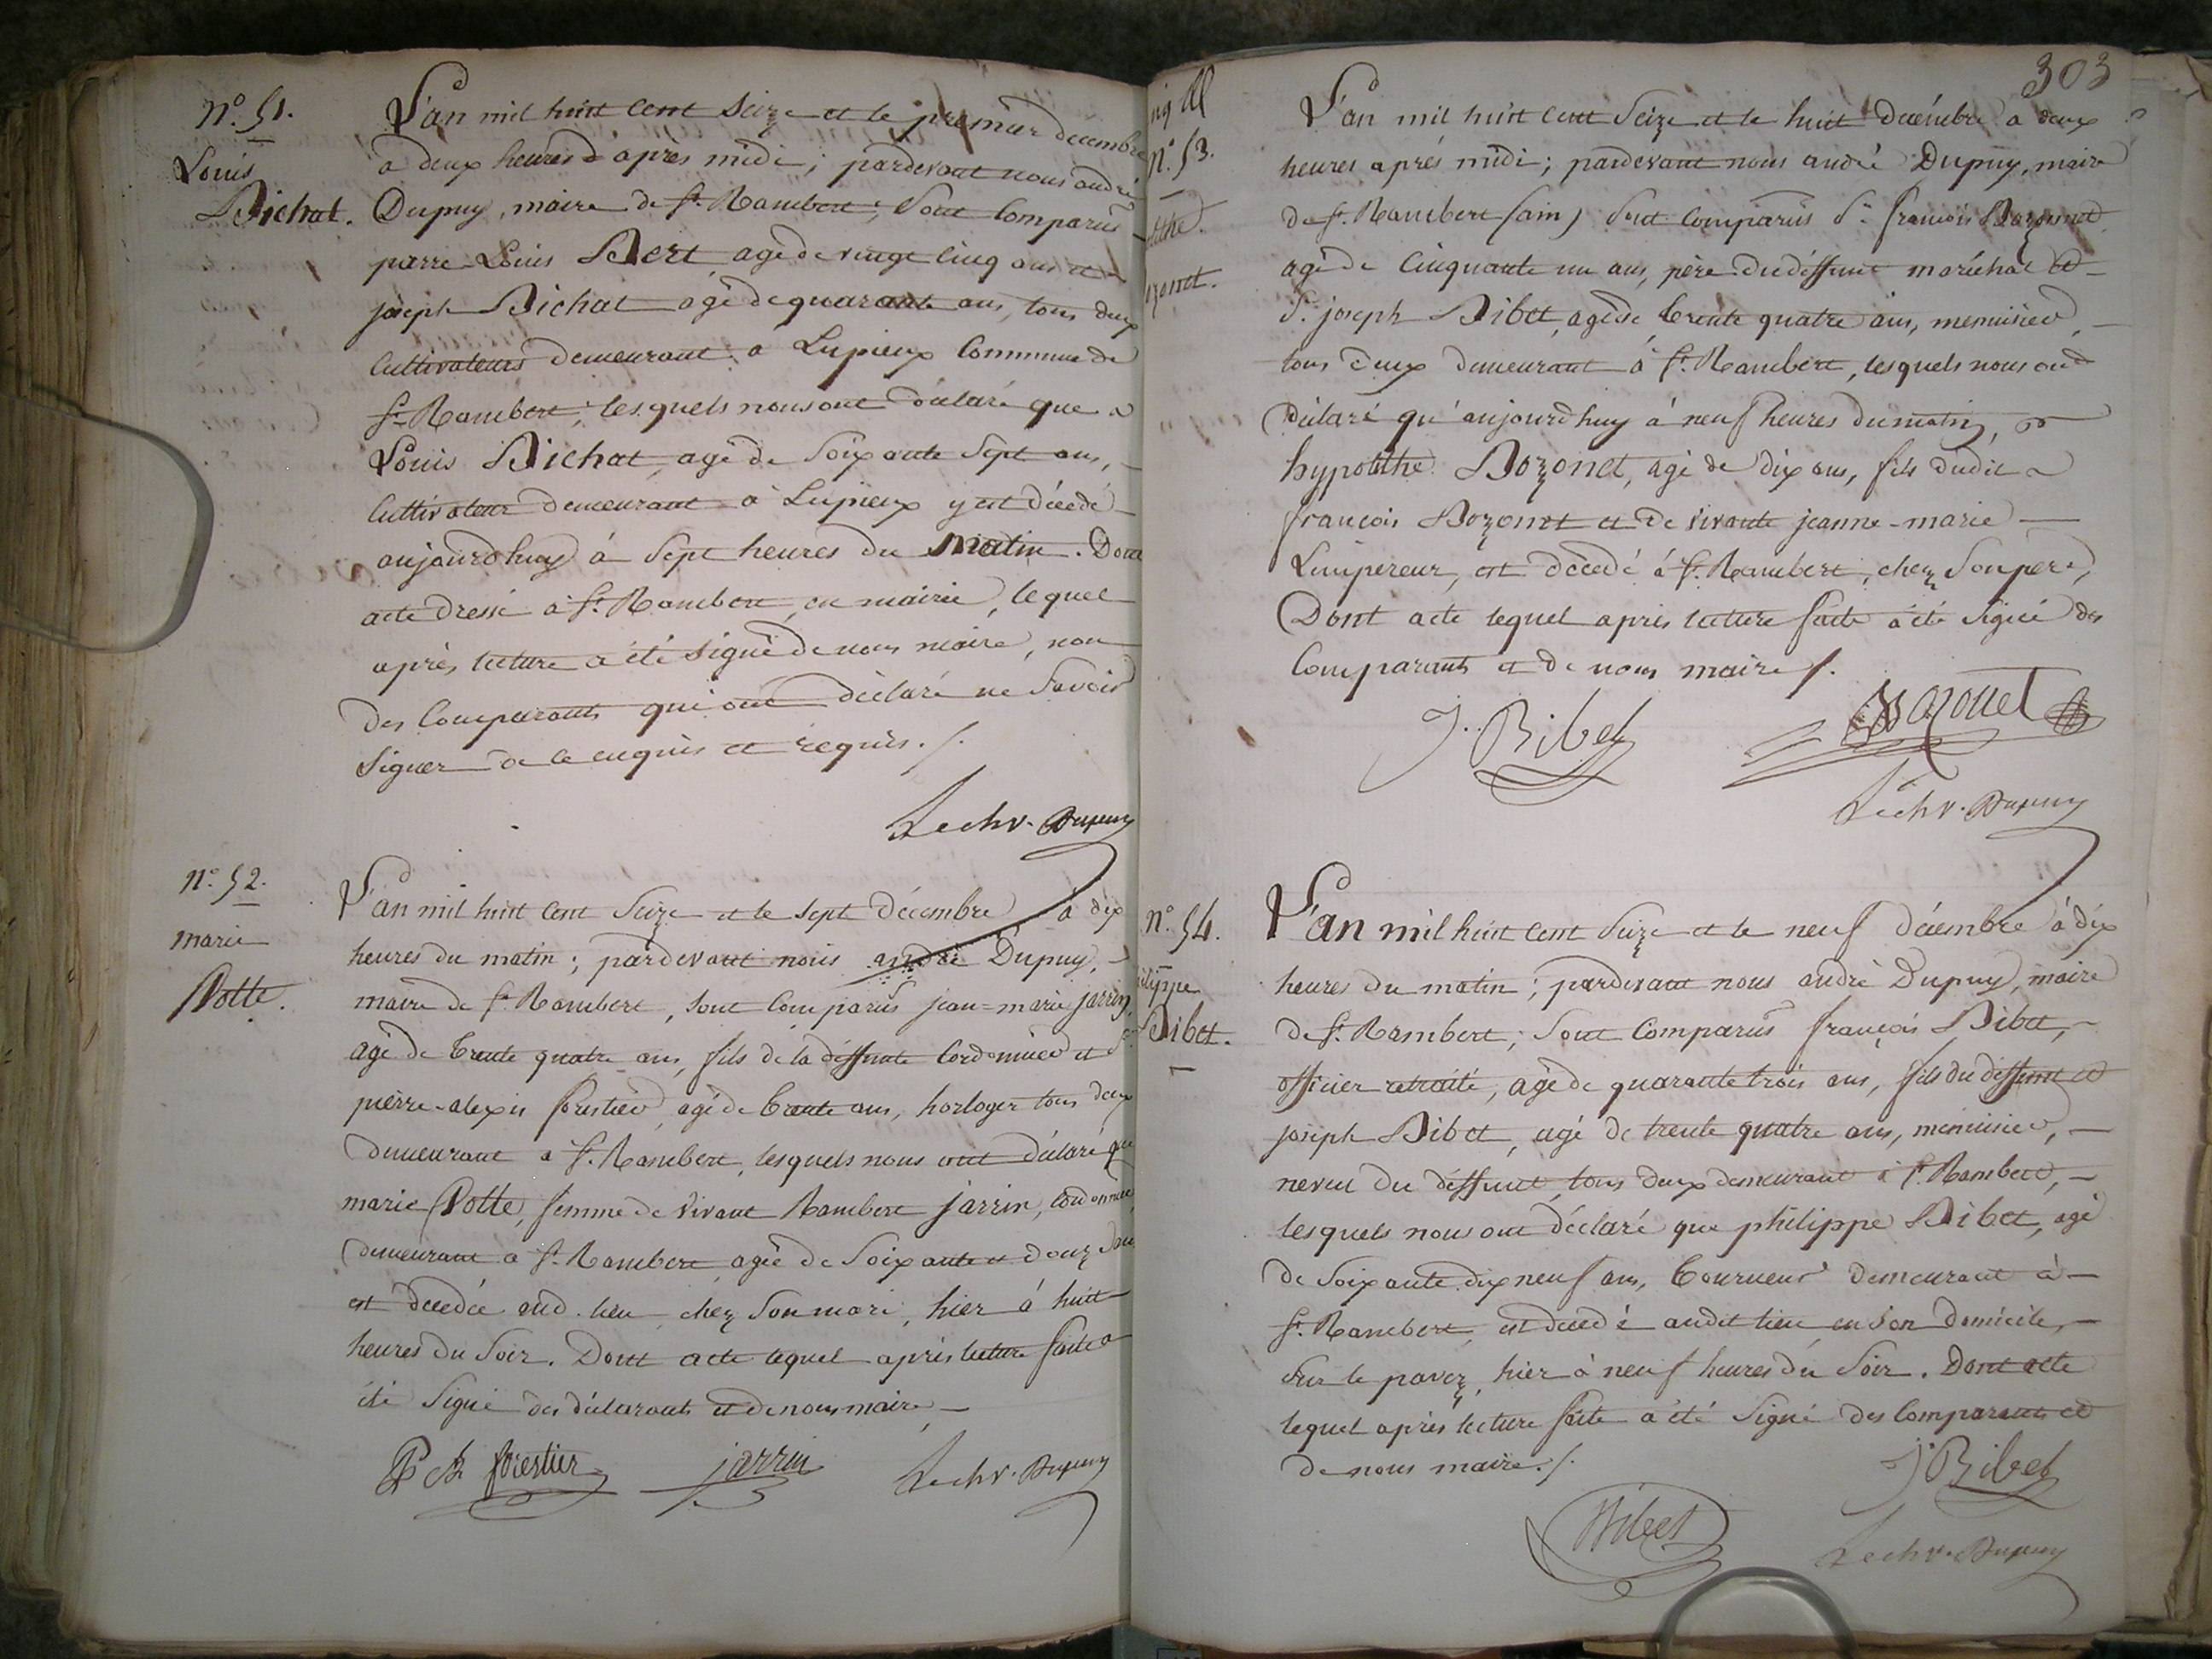 N.° 51.
Louis
Bichat.
L'an mil huit cent Seize et le premier decembre
a deux heures d'après midi ; pardevant nous andré
Dupuy, maire de St. Rambert ; Sont Comparus
pierre-Louis Bert agé de vingt cinq ans et
joseph Bichat agé de quarante ans, tous deux
Cultivateurs demeurant a Lupieux Commune de
St. Rambert, lesquels nous ont déclaré que
Louis Bichat, agé de Soixante Sept ans,
Cultivateur demeurant à Lupieux y est décédé
aujourd'huy à Sept heures du Matin. Dont
acte dressé à St. Rambert, en mairie, lequel
après lecture a été Signé de nous maire, non
des Comparants qui ont déclaré ne Savoir
Signer de ce enquis et requis ./.
Le chr. Dupuy
N.° 52.
marie
Potte.
L'an mil huit Cent Seize et le sept décembre à dix
heures du matin ; pardevant nous andré Dupuy,
maire de St. Rambert, Sont Comparus jean=marie jarrin,
agé de trente quatre ans, fils de la deffunte Cordonnier et Sr.
pierre-alexis forestier, agé de trente ans, horloger tous deux
demeurant a St. Rambert, lesquels nous ont déclaré que
marie Potte, femme de vivant Rambert jarrin, Cordonnier,
demeurant a St. Rambert, agée de Soixante et douze ans
est décédée aud. lieu, chez Son mari, hier à huit
heures du Soir. Dont acte lequel après lecture faite a
été Signé des déclarants et de nous maire,
forestier jarrin Le chr. Dupuy
303
N.° 53.
L'an mil huit cent Seize et le huit decémbre a deux
heures après midi ; pardevant nous andré Dupuy, maire
de St. Rambert (ain) Sont Comparus Sr. françois Bozonnet
agé de Cinquante un ans, père du déffunt maréchal et
Sr. joseph Bibet, agé de trente quatre ans, menuisier,
tous deux demeurant à St. Rambert, lesquels nous ont
Déclaré qu'aujourdhuy à neuf heures du matin,
hypolithe Bozonet, agé de dix ans, fils dudit
françois Bozonet et de vivante jeanne-marie
Lempereur, est décédé à St. Rambert, chez Son père,
Dont acte lequel après lecture faite a été Signé des
Comparants et de nous maire /.
J. Bibet Bozonet
Le chr. Dupuy
N.° 54.
ilippe
Bibet.
L'an mil huit Cent Seize et le neuf décembre à dix
heures du matin ; pardevant nous andré Dupuy, maire
de St. Rambert ; Sont Comparus françois Bibet,
officier retraité, agé de quarante trois ans, fils du deffunt et
joseph Bibet, agé de trente quatre ans, menuisier,
neveu du déffunt, tous deux demeurant à St. Rambert,
lesquels nous ont déclaré que philippe Bibet, agé
de Soixante dix neuf ans, tourneur demeurant à
St. Rambert, est décédé audit lieu en Son Domicile,
Sur le pavez, hier à neuf heures du Soir. Dont acte
lequel après lecture faite a été Signé des Comparants et
de nous maire ./.
J Bibet
Bibet
Le chr. Dupuy